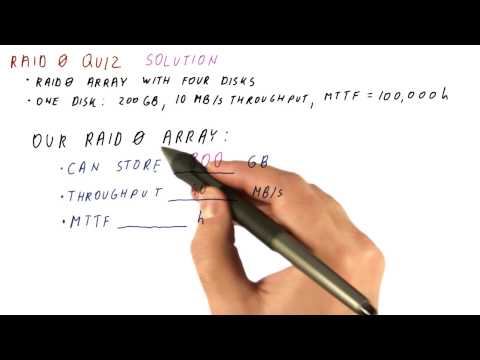 RAID 0 QUIZ SOLUTION
• RAID 0 ARRAY WITH FOUR DISKS
• ONE DISK: 200 GB, 10 MB/S THROUGHPUT, MTTF = 100,000 h
OUR RAID 0 ARRAY:
• CAN STORE 800 GB
• THROUGHPUT GB/s
• MTTF ______ h